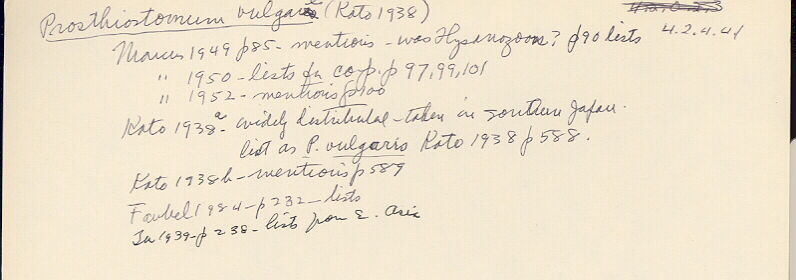 Prosthiostomum vulgare (Kato 1938)
Marcus 1949 p85 - mentions - was Hysanozoon? p90 lists 4.2.4.41
" 1950 - lists for comp. p 97, 99, 101
" 1952 - mentions p100
Kato 1938a - widely distributed - taken in southern Japan.
list as P. vulgaris Kato 1938 p588.
Kato 1938b - mentions p589
Faubel 1984 - p232 - lists
1939 - p238 - lists from E. Asia